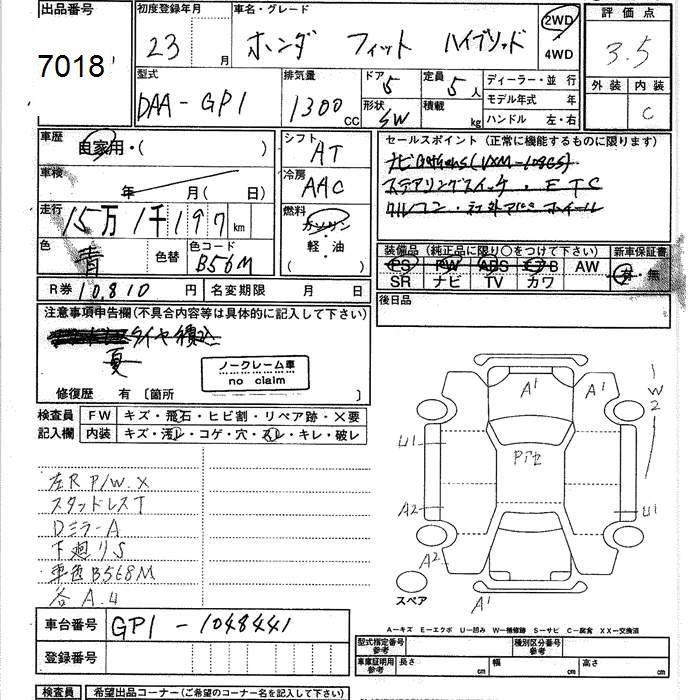 出品番号
7018
初度登録年月
23 月
車名・グレード
ホンダ フィット ハイブリッド
2WD
4WD
評価点
3.5
外装 内装
C
型式
DAA-GP1
排気量
1300 CC
ドア 5
形状 SW
定員 5 人
積載 kg
ディーラー・並行
モデル年式 年
ハンドル 左・右
車歴
自家用・( )
車検
年 月( 日)
走行
15万1千197 km
色
青
色替
色コード
B56M
シフト
AT
冷房
AAC
燃料
ガソリン
軽・油
( )
セールスポイント(正常に機能するものに限ります)
ステアリングスイッチ・ETC
装備品(純正品に限り○をつけて下さい)
PS PW ABS エアB AW
SR ナビ TV カワ
新車保証書
有・無
R券 10,810 円
名変期限 月 日
後日品
注意事項申告欄(不具合内容等は具体的に記入して下さい)
タイヤ積込
夏
ノークレーム車
no claim
修復歴 有 〔箇所 〕
検査員
記入欄
FW キズ・飛石・ヒビ割・リペア跡・X要
内装 キズ・汚レ・コゲ・穴・スレ・キレ・破レ
左R P/W.X
スタッドレスT
DミラーA
下廻りS
車色B568M
各A.4
A1
A1
W2
U1
Pアセ
A2
U1
A2
A1
スペア
A—キズ E—エクボ U—凹み W—補修跡 S—サビ C—腐食 XX—交換済
車台番号
GP1-1048441
登録番号
型式指定番号
参考
種別区分番号
参考
車庫証明用
参考
長さ cm
幅 cm
高さ cm
検査員
希望出品コーナー(ご希望のコーナー名を記入して下さい)